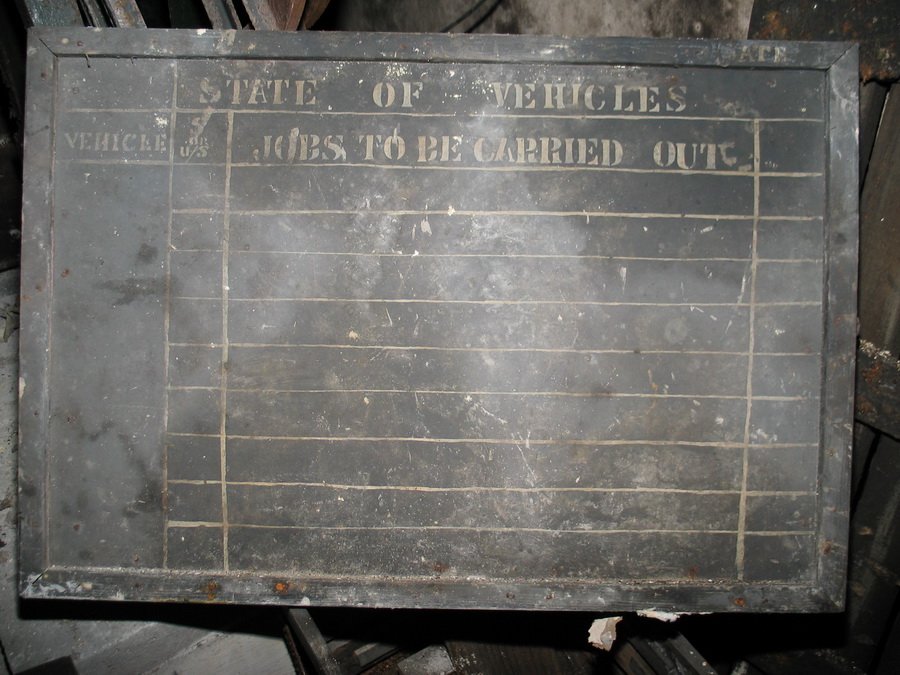 DATE
STATE OF VEHICLES
VEHICLE
S
OR
U/S
JOBS TO BE CARRIED OUT